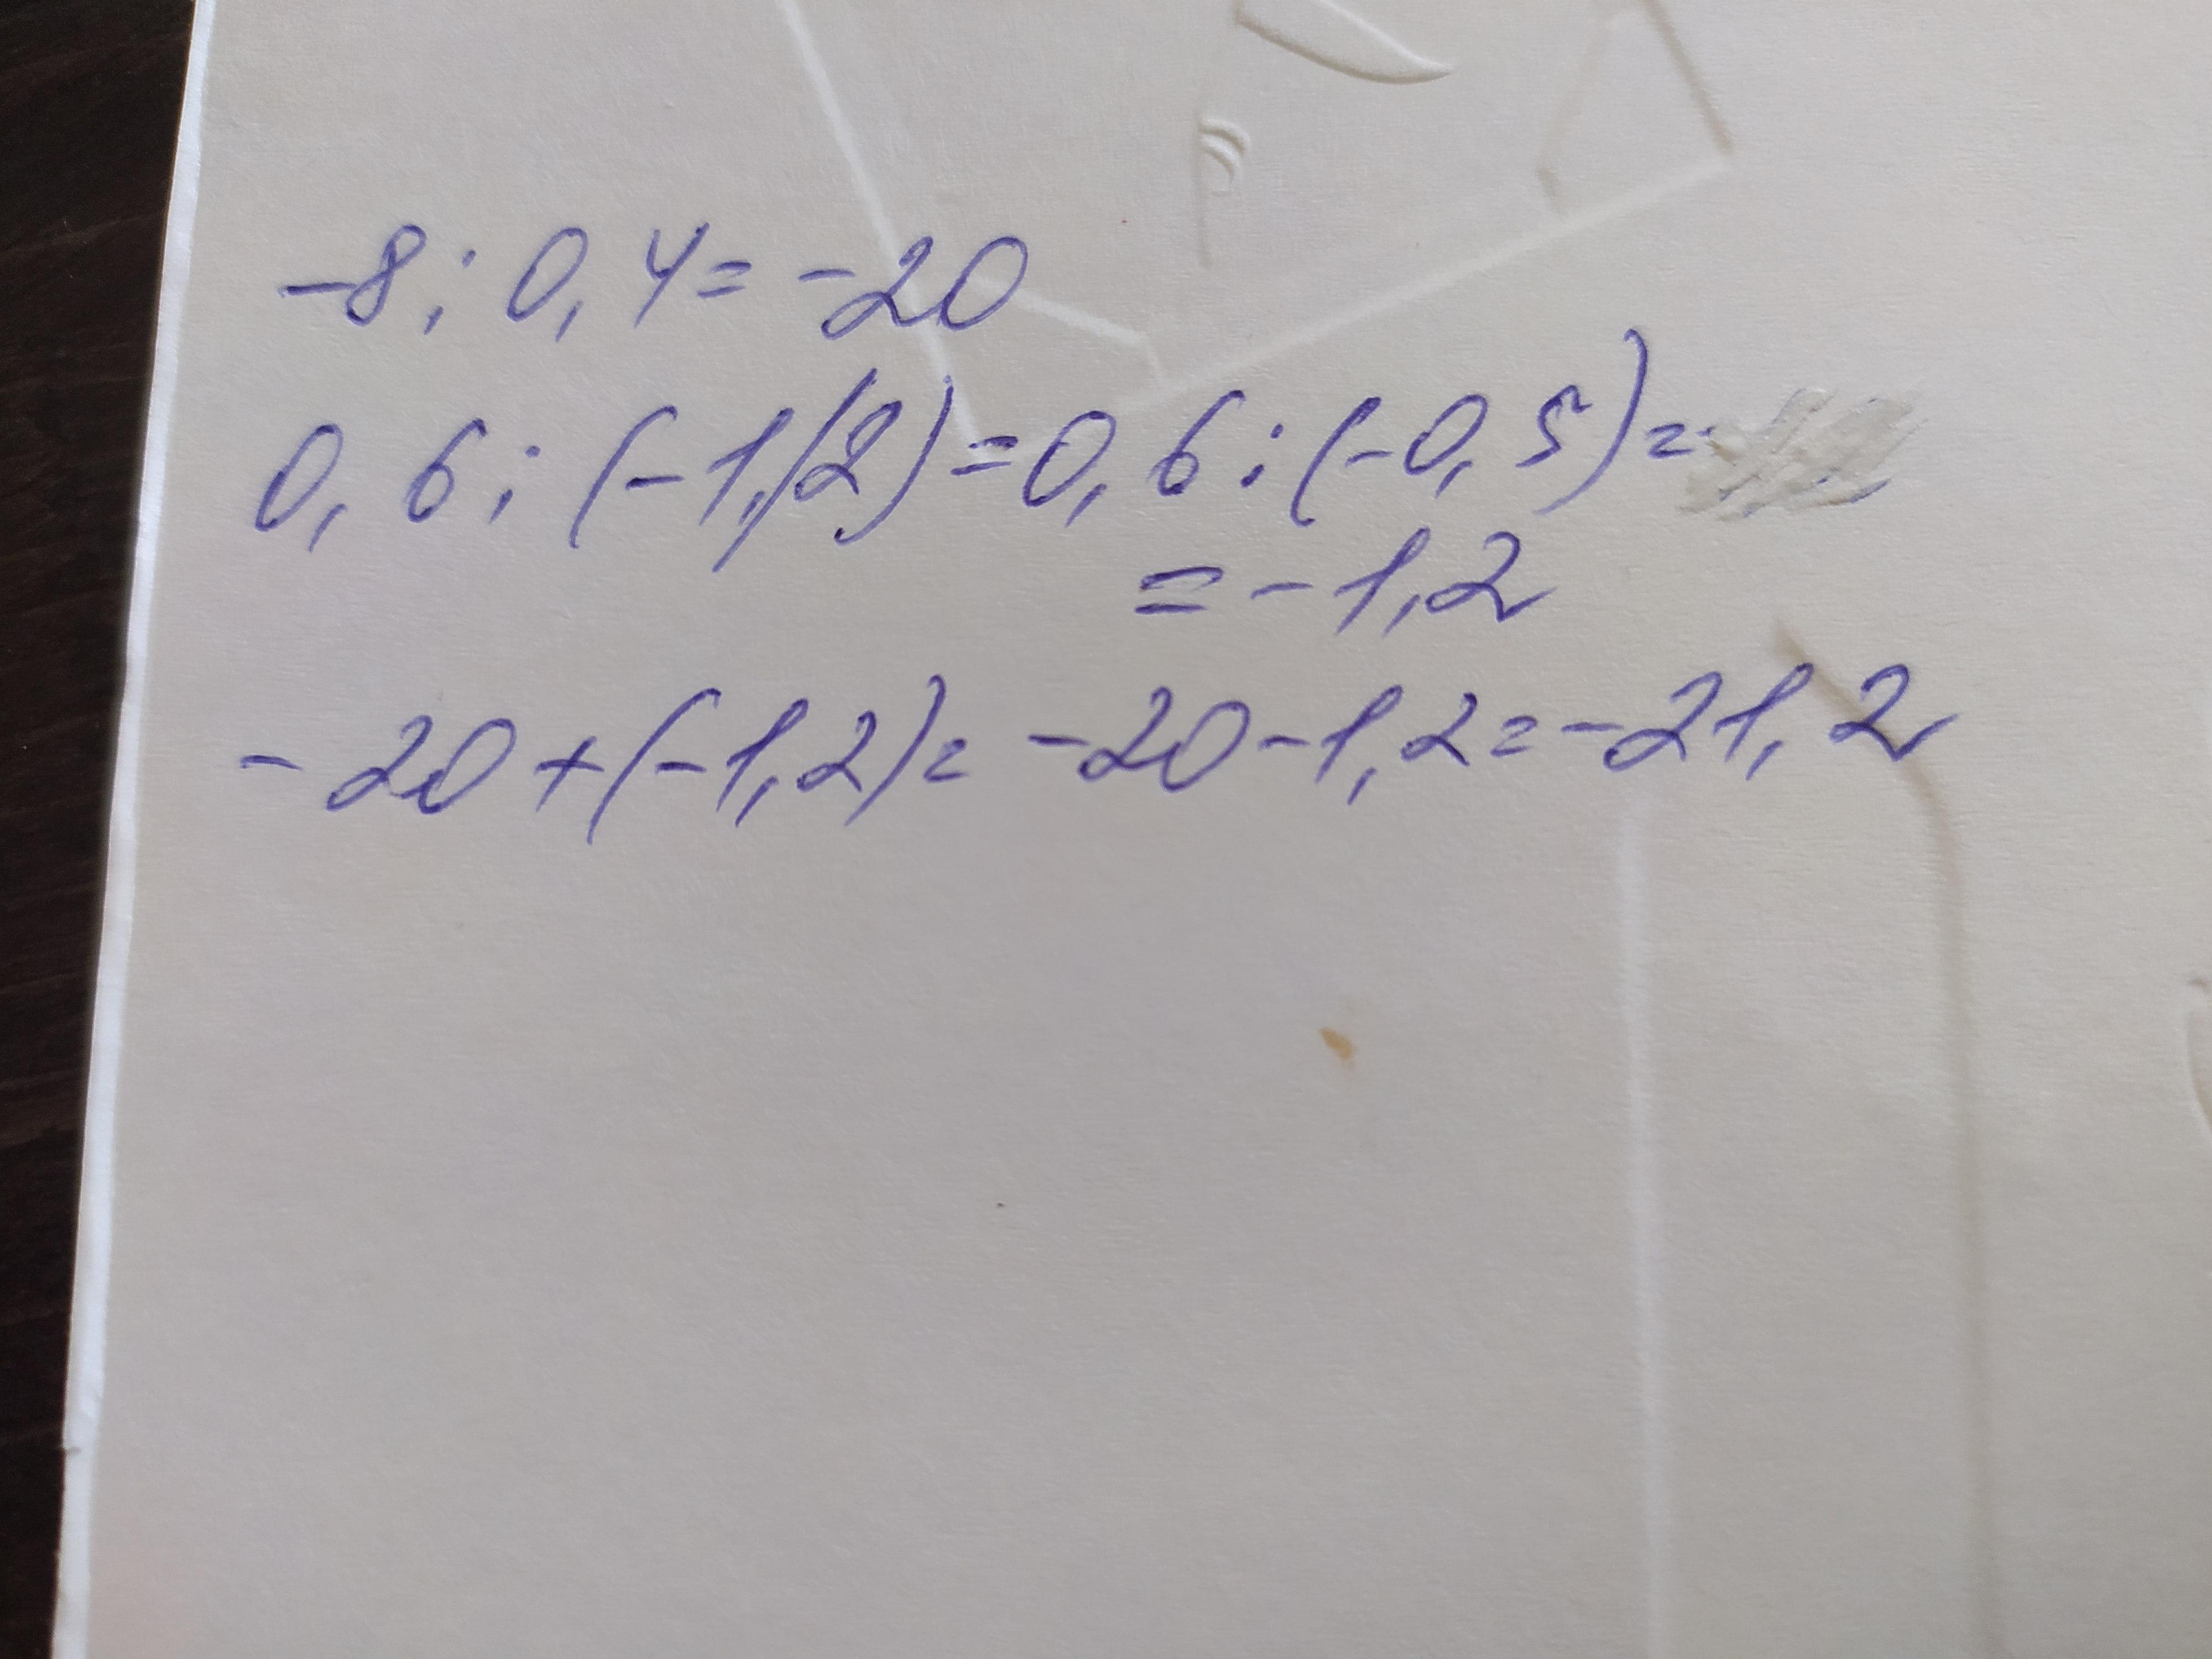 -8 : 0,4 = -20
0,6 : (-1/2) = 0,6 : (-0,5) =
= -1,2
-20 + (-1,2) = -20 - 1,2 = -21,2